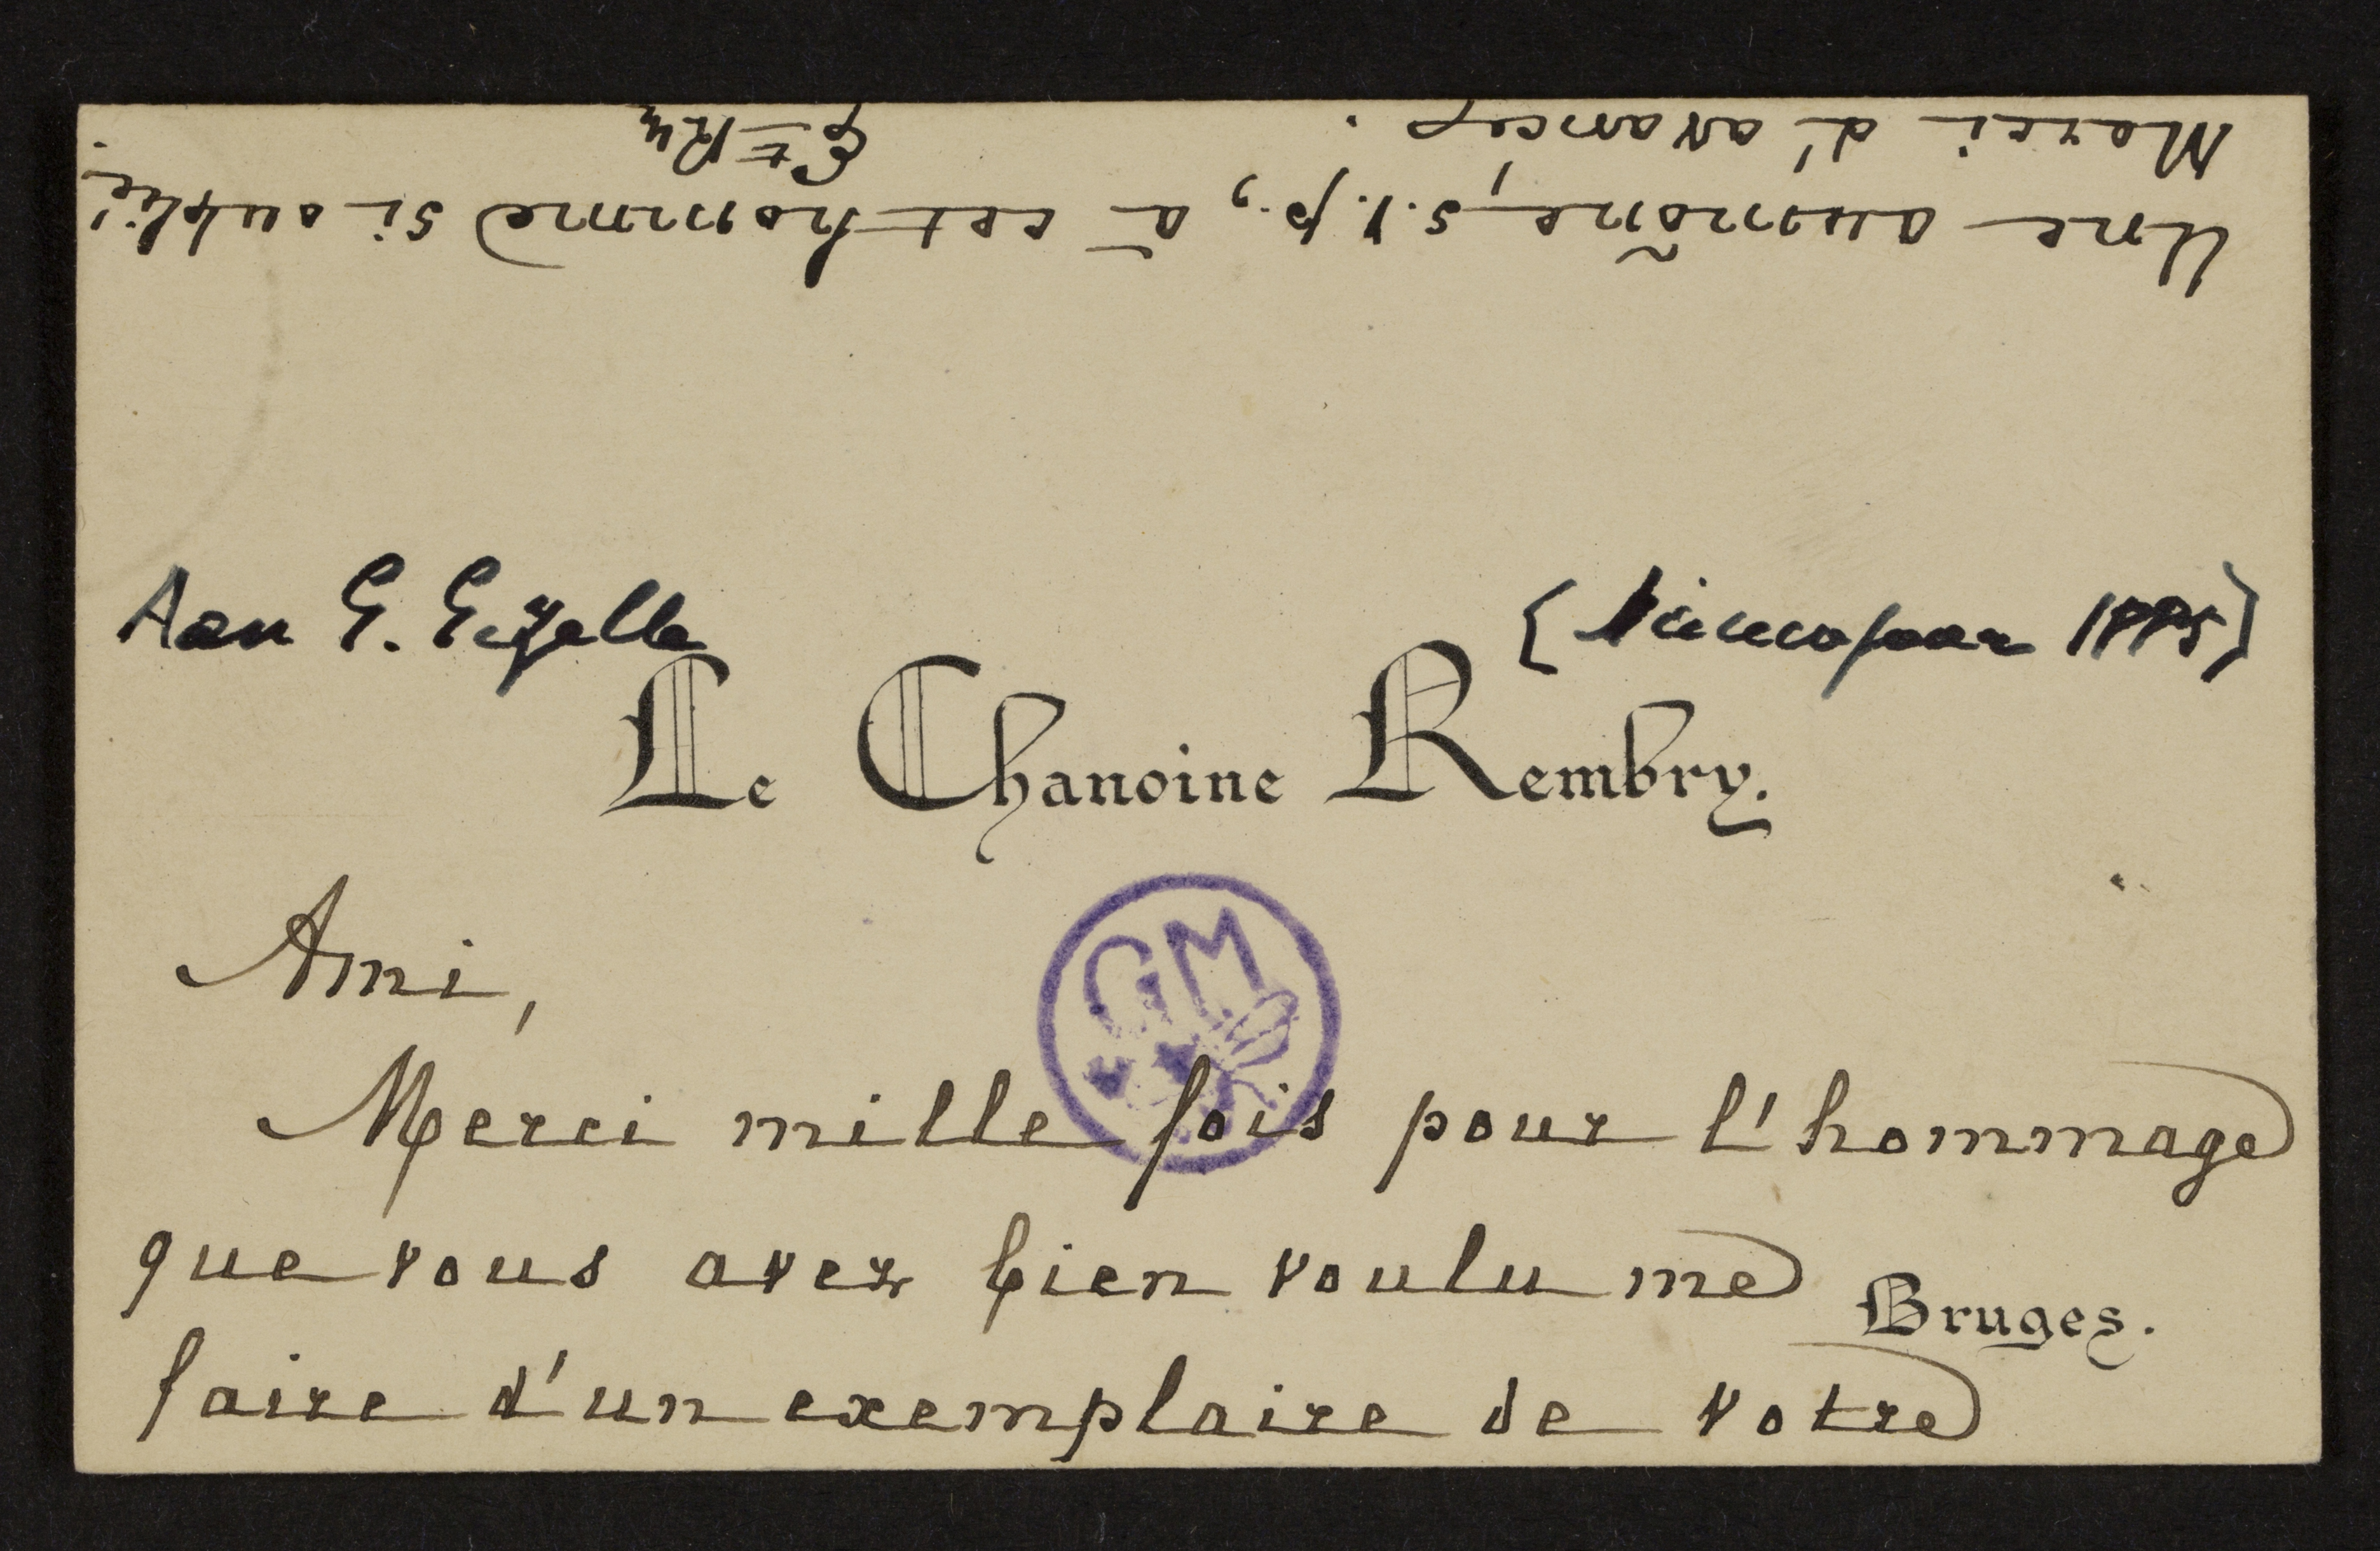 Aan G. Gezelle
[Nieuwjaar 1885]
Le Chanoine Rembry.
GM
Ami,
Merci mille fois pour l'hommage
que vous avez bien voulu me
Bruges.
faire d'un exemplaire de votre
Une aumône, s.v.p., à cet homme si oublié.
Merci d'avance.
Et Ry